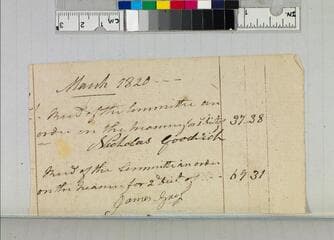 March 1820
Rec'd of the Committee an
order on the Treasurer for 37.38
Nicholas Goodrich
Rec'd of the Committee an order
on the Treasurer for 69.31
James